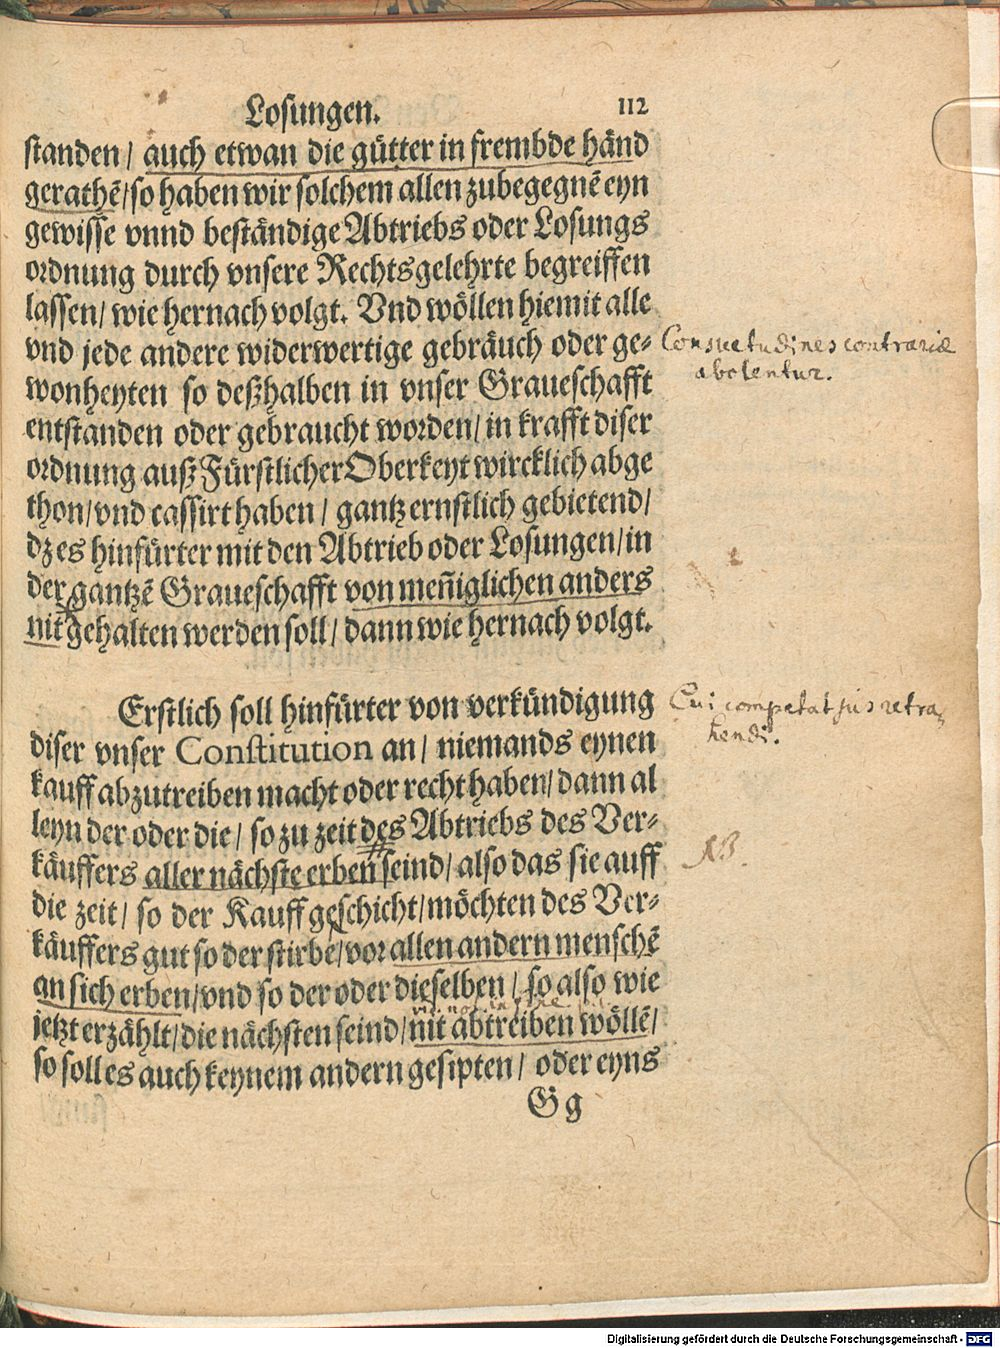 Losungen. 112
standen/ auch etwan die gütter in frembde händ
gerathē/so haben wir solchem allen zubegegnē eyn
gewisse vnnd beständige Abtriebs oder Losungs
ordnung durch vnsere Rechtsgelehrte begreiffen
lassen/ wie hernach volgt. Vnd wöllen hiemit alle
vnd jede andere widerwertige gebräuch oder ge-
Consuetudines contrariæ
abolentur.
wonheyten so deßhalben in vnser Graueschafft
entstanden oder gebraucht worden/ in krafft diser
ordnung auß Fürstlicher Oberkeyt wircklich abge
thon/vnd cassirt haben/ gantz ernstlich gebietend/
dz es hinfürter mit den Abtrieb oder Losungen/in
der gantzē Graueschafft von meñiglichen anders
nit gehalten werden soll/ dann wie hernach volgt.
Erstlich soll hinfürter von verkündigung
Cui competat jus retra-
hendi.
diser vnser Constitution an/ niemands eynen
kauff abzutreiben macht oder recht haben/dann al
leyn der oder die/ so zu zeit des Abtriebs des Ver-
käuffers aller nächste erben seind/ also das sie auff
NB.
die zeit/ so der Kauff geschicht/möchten des Ver-
käuffers gut so der stirbe/vor allen andern menschē
an sich erben/vnd so der oder dieselben/ so also wie
jetzt erzählt/die nächsten seind/nit abtreiben wöllē/
so soll es auch keynem andern gesipten/ oder eyns
Gg
Digitalisierung gefördert durch die Deutsche Forschungsgemeinschaft - DFG